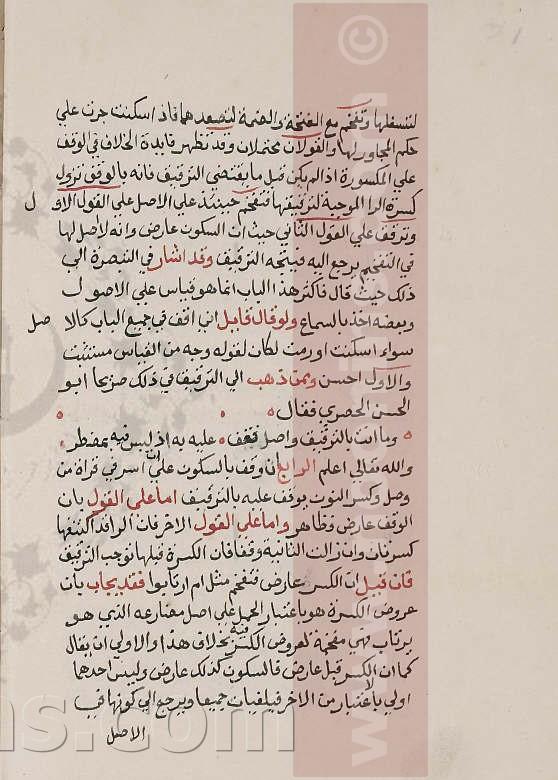 لتسفلها وتفخم مع الفتحة والضمة لتصعدهما فاذ اسكنت جرت علي
حكم المجاور لها والقولان محتملان وقد تظهر فايدة الخلاف في الوقف
علي المكسورة اذ الم يكن قبل ما يقتضي الترقيق فانه بالوقف تزول
كسرة الرا الموجبة لترقيقها فتفخم حينيذ علي الاصل علي القول الاو ل
وترقق علي القول الثاني حيث ان السكون عارض وانه لا صل لها
في التفخيم يرجع اليه فيتجه الترقيق وقد اشار في التبصرة الي
ذلك حيث قال فاكثر هذا الباب انما هو قياس علي الاصول
وبعضه اخذ بالسماع ولو قال قايل اني اقف في جميع الباب كالا صل
سواء اسكنت او رمت لكان لقوله وجه من القياس مستثبت
والاول احسن وممن ذهب الي الترقيق في ذلك صريحا ابو
الحسن الحصري فقال
وما انت بالترقيق واصل فقف عليه به اذ ليس فيه بمضطر
والله تعالي اعلم الرابع ان وقف بالسكون علي ان اسر في قراة من
وصل وكسر النون يوقف عليه بالترقيق اما علي القول بان
الوقف عارض وظاهر واما علي القول الاخر فان الرا قد اكتنفها
كسرتان وان زالت الثانية وقفا فان الكسرة قبلها توجب الترقيق
فان قيل ان الكسر عارض فتفخم مثل ام ارتابوا فقد يجاب بان
عروض الكسرة هو باعتبار الحمل علي اصل مضارعه الذي هو
يرتاب فهي مفخمة لعروض الكسر فيه بخلاف هذا والاولي ان يقال
كما ان الكسر قبل عارض فالسكون كذلك عارض وليس احدهما
اولي بالاعتبار من الاخر فيلغيان جميعا ويرجع الي كونها في
الاصل